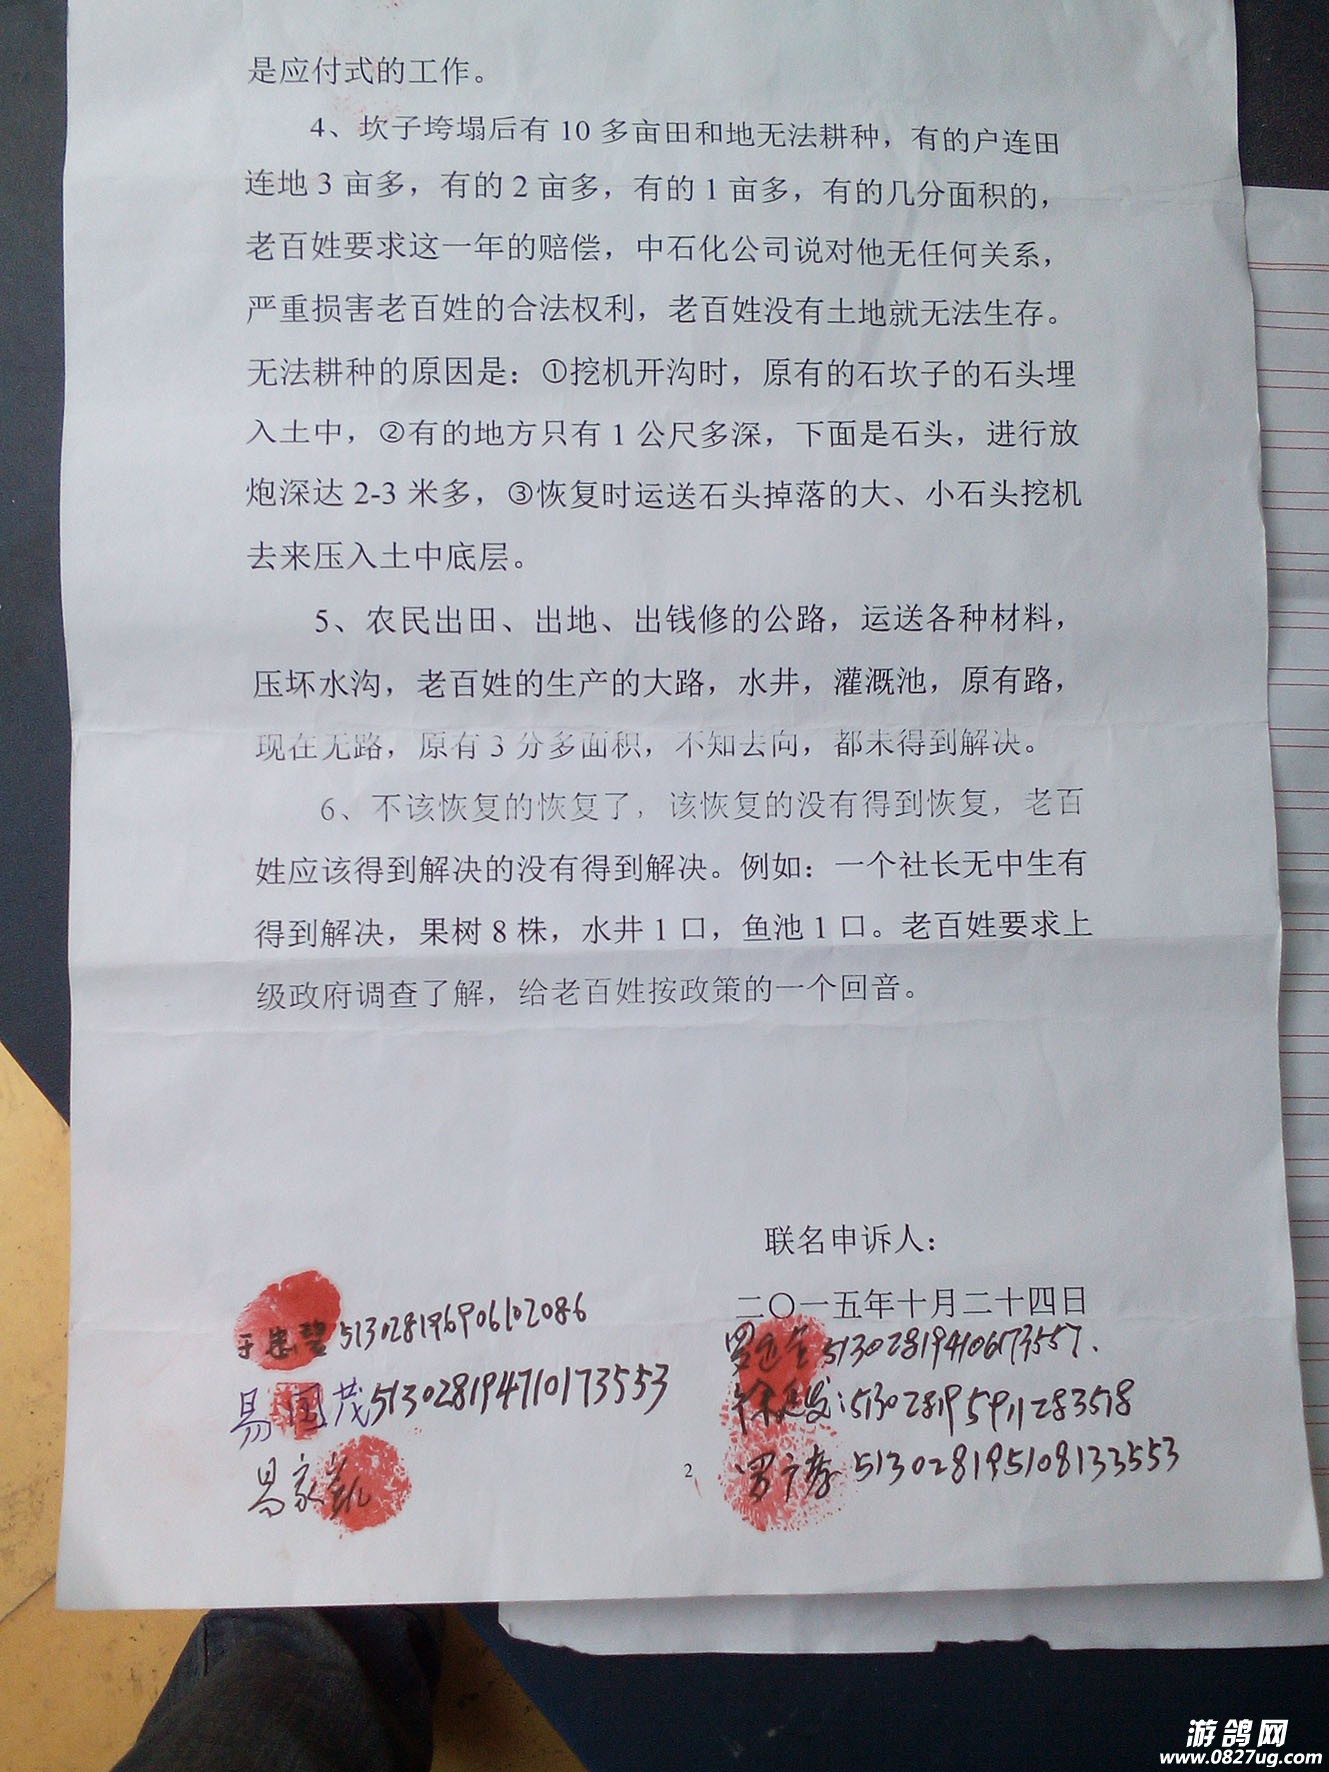 是应付式的工作。
4、坎子垮塌后有 10 多亩田和地无法耕种，有的户连田
连地 3 亩多，有的 2 亩多，有的 1 亩多，有的几分面积的，
老百姓要求这一年的赔偿，中石化公司说对他无任何关系，
严重损害老百姓的合法权利，老百姓没有土地就无法生存。
无法耕种的原因是：①挖机开沟时，原有的石坎子的石头埋
入土中，②有的地方只有 1 公尺多深，下面是石头，进行放
炮深达 2-3 米多，③恢复时运送石头掉落的大、小石头挖机
去来压入土中底层。
5、农民出田、出地、出钱修的公路，运送各种材料，
压坏水沟，老百姓的生产的大路，水井，灌溉池，原有路，
现在无路，原有 3 分多面积，不知去向，都未得到解决。
6、不该恢复的恢复了，该恢复的没有得到恢复，老百
姓应该得到解决的没有得到解决。例如：一个社长无中生有
得到解决，果树 8 株，水井 1 口，鱼池 1 口。老百姓要求上
级政府调查了解，给老百姓按政策的一个回音。
联名申诉人：
二〇一五年十月二十四日
513028196906102086
易国茂513028194710173553
易家凯
513028194106173557.
徐廷发:513028195911283518
罗 513028195108133553
2
游鸽网
www.0827ug.com